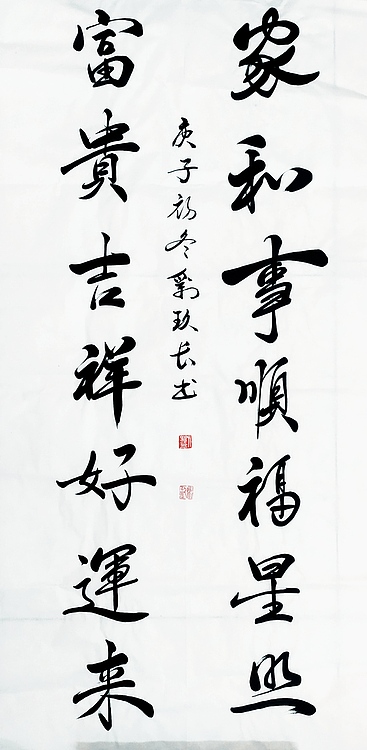 家和事順福星照
富貴吉祥好運来
庚子初冬劉玖長书